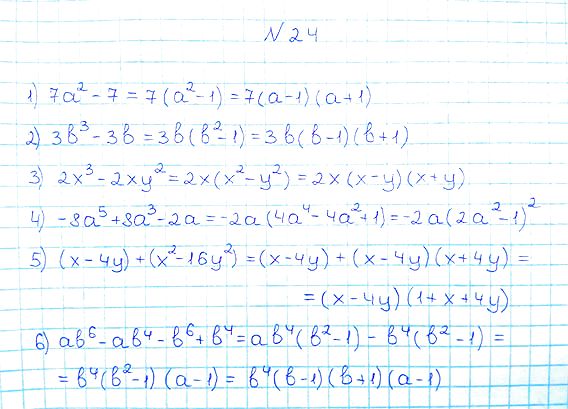 N 24
1) 7a² - 7 = 7(a² - 1) = 7(a - 1)(a + 1)
2) 3в³ - 3в = 3в(в² - 1) = 3в(в - 1)(в + 1)
3) 2x³ - 2xy² = 2x(x² - y²) = 2x(x - y)(x + y)
4) -8a⁵ + 8a³ - 2a = -2a(4a⁴ - 4a² + 1) = -2a(2a² - 1)²
5) (x - 4y) + (x² - 16y²) = (x - 4y) + (x - 4y)(x + 4y) =
= (x - 4y)(1 + x + 4y)
6) aв⁶ - aв⁴ - в⁶ + в⁴ = aв⁴(в² - 1) - в⁴(в² - 1) =
= в⁴(в² - 1)(a - 1) = в⁴(в - 1)(в + 1)(a - 1)